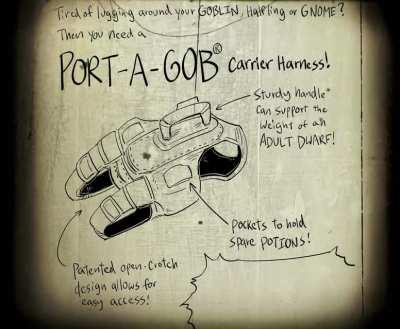 Tired of lugging around your GOBLIN, Halfling or GNOME?
Then you need a
PORT-A-GOB® Carrier Harness!
Sturdy handle*
can support the
weight of an
ADULT DWARF!
pockets to hold
spare POTIONS!
Patented open-crotch
design allows for
easy access!